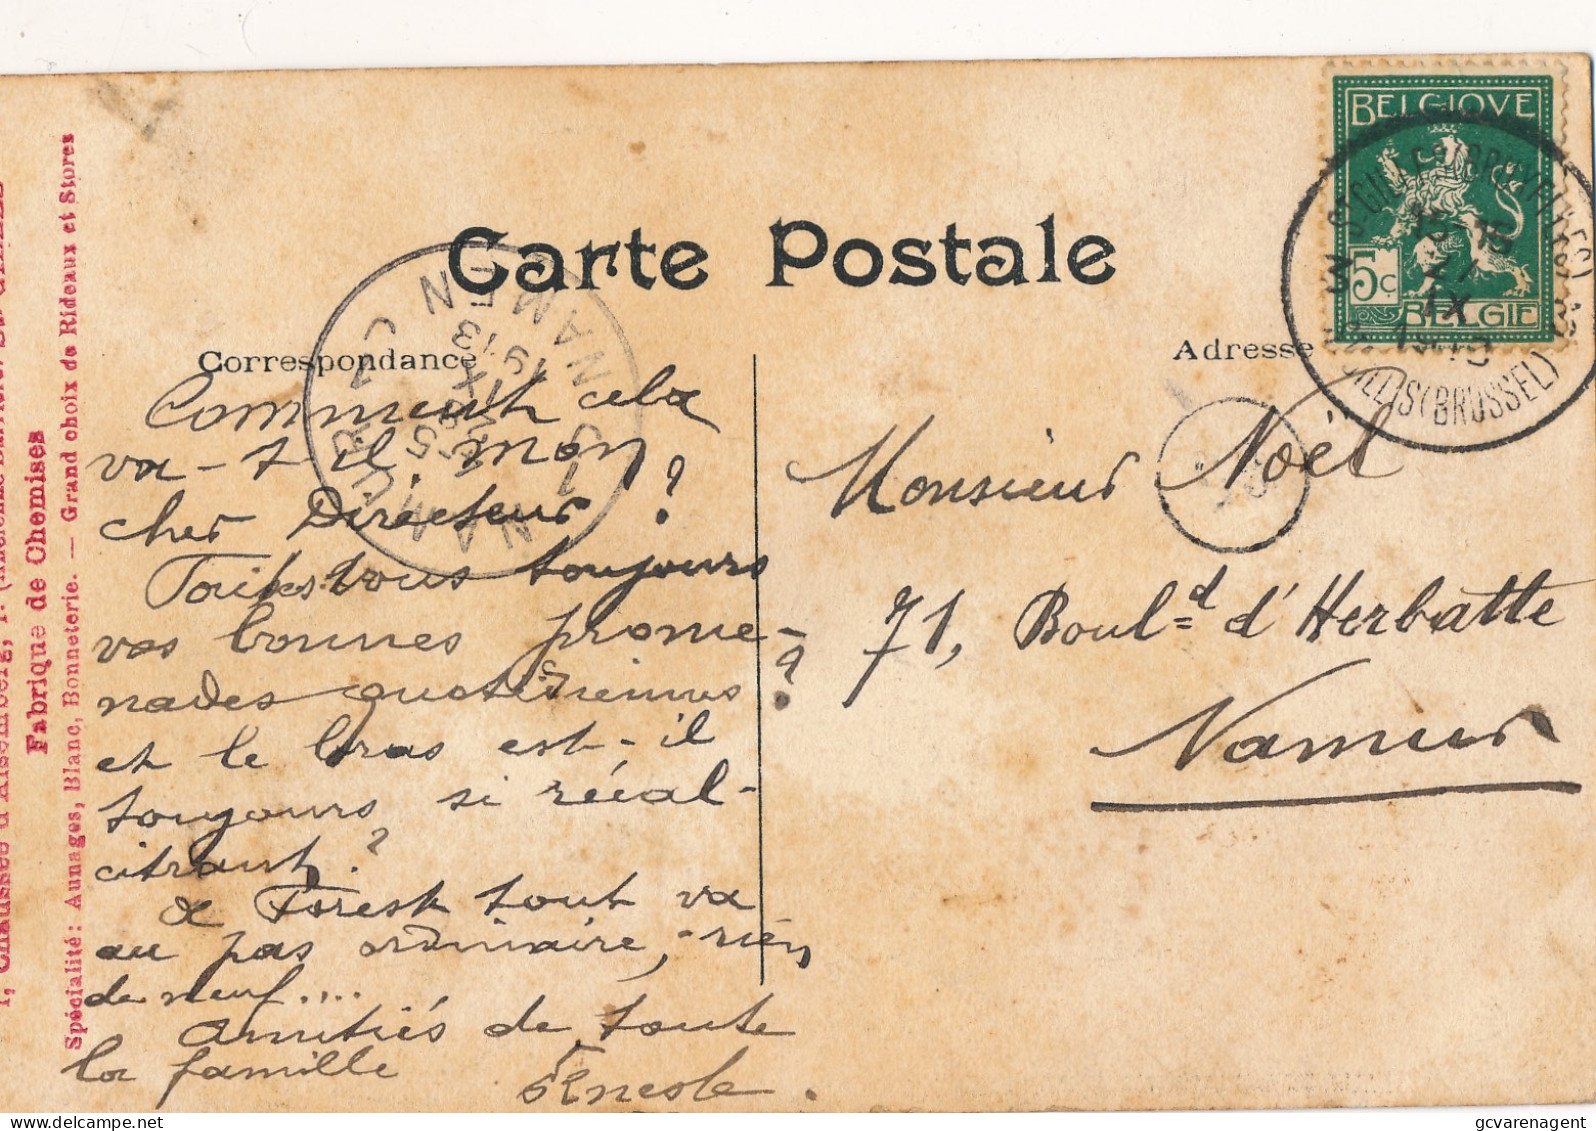 Carte Postale
Correspondance
Adresse
BELGIQUE
5c
BELGIE
Comment cela
va-t-il mon
cher Directeur ?
Faites-vous toujours
vos bonnes prome-
nades quotidiennes ?
et le bras est-il
toujours si récal-
citrant ?
A Forest tout va
au pas ordinaire, rien
de neuf....
Amitiés de toute
la famille
Monsieur Noël
71, Boul d d'Herbatte
Namur
Fabrique de Chemises
Spécialité: Aunages, Blanc, Bonneterie. — Grand choix de Rideaux et Stores
NAMUR 1
NAMEN 1
(BRUSSEL)
gcvarenagent